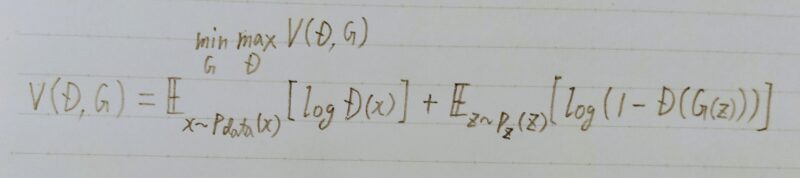 min max V(D, G)
G D
V(D, G) = 𝔼 x~Pdata(x) [log D(x)] + 𝔼 z~Pz(z) [log(1 - D(G(z)))]